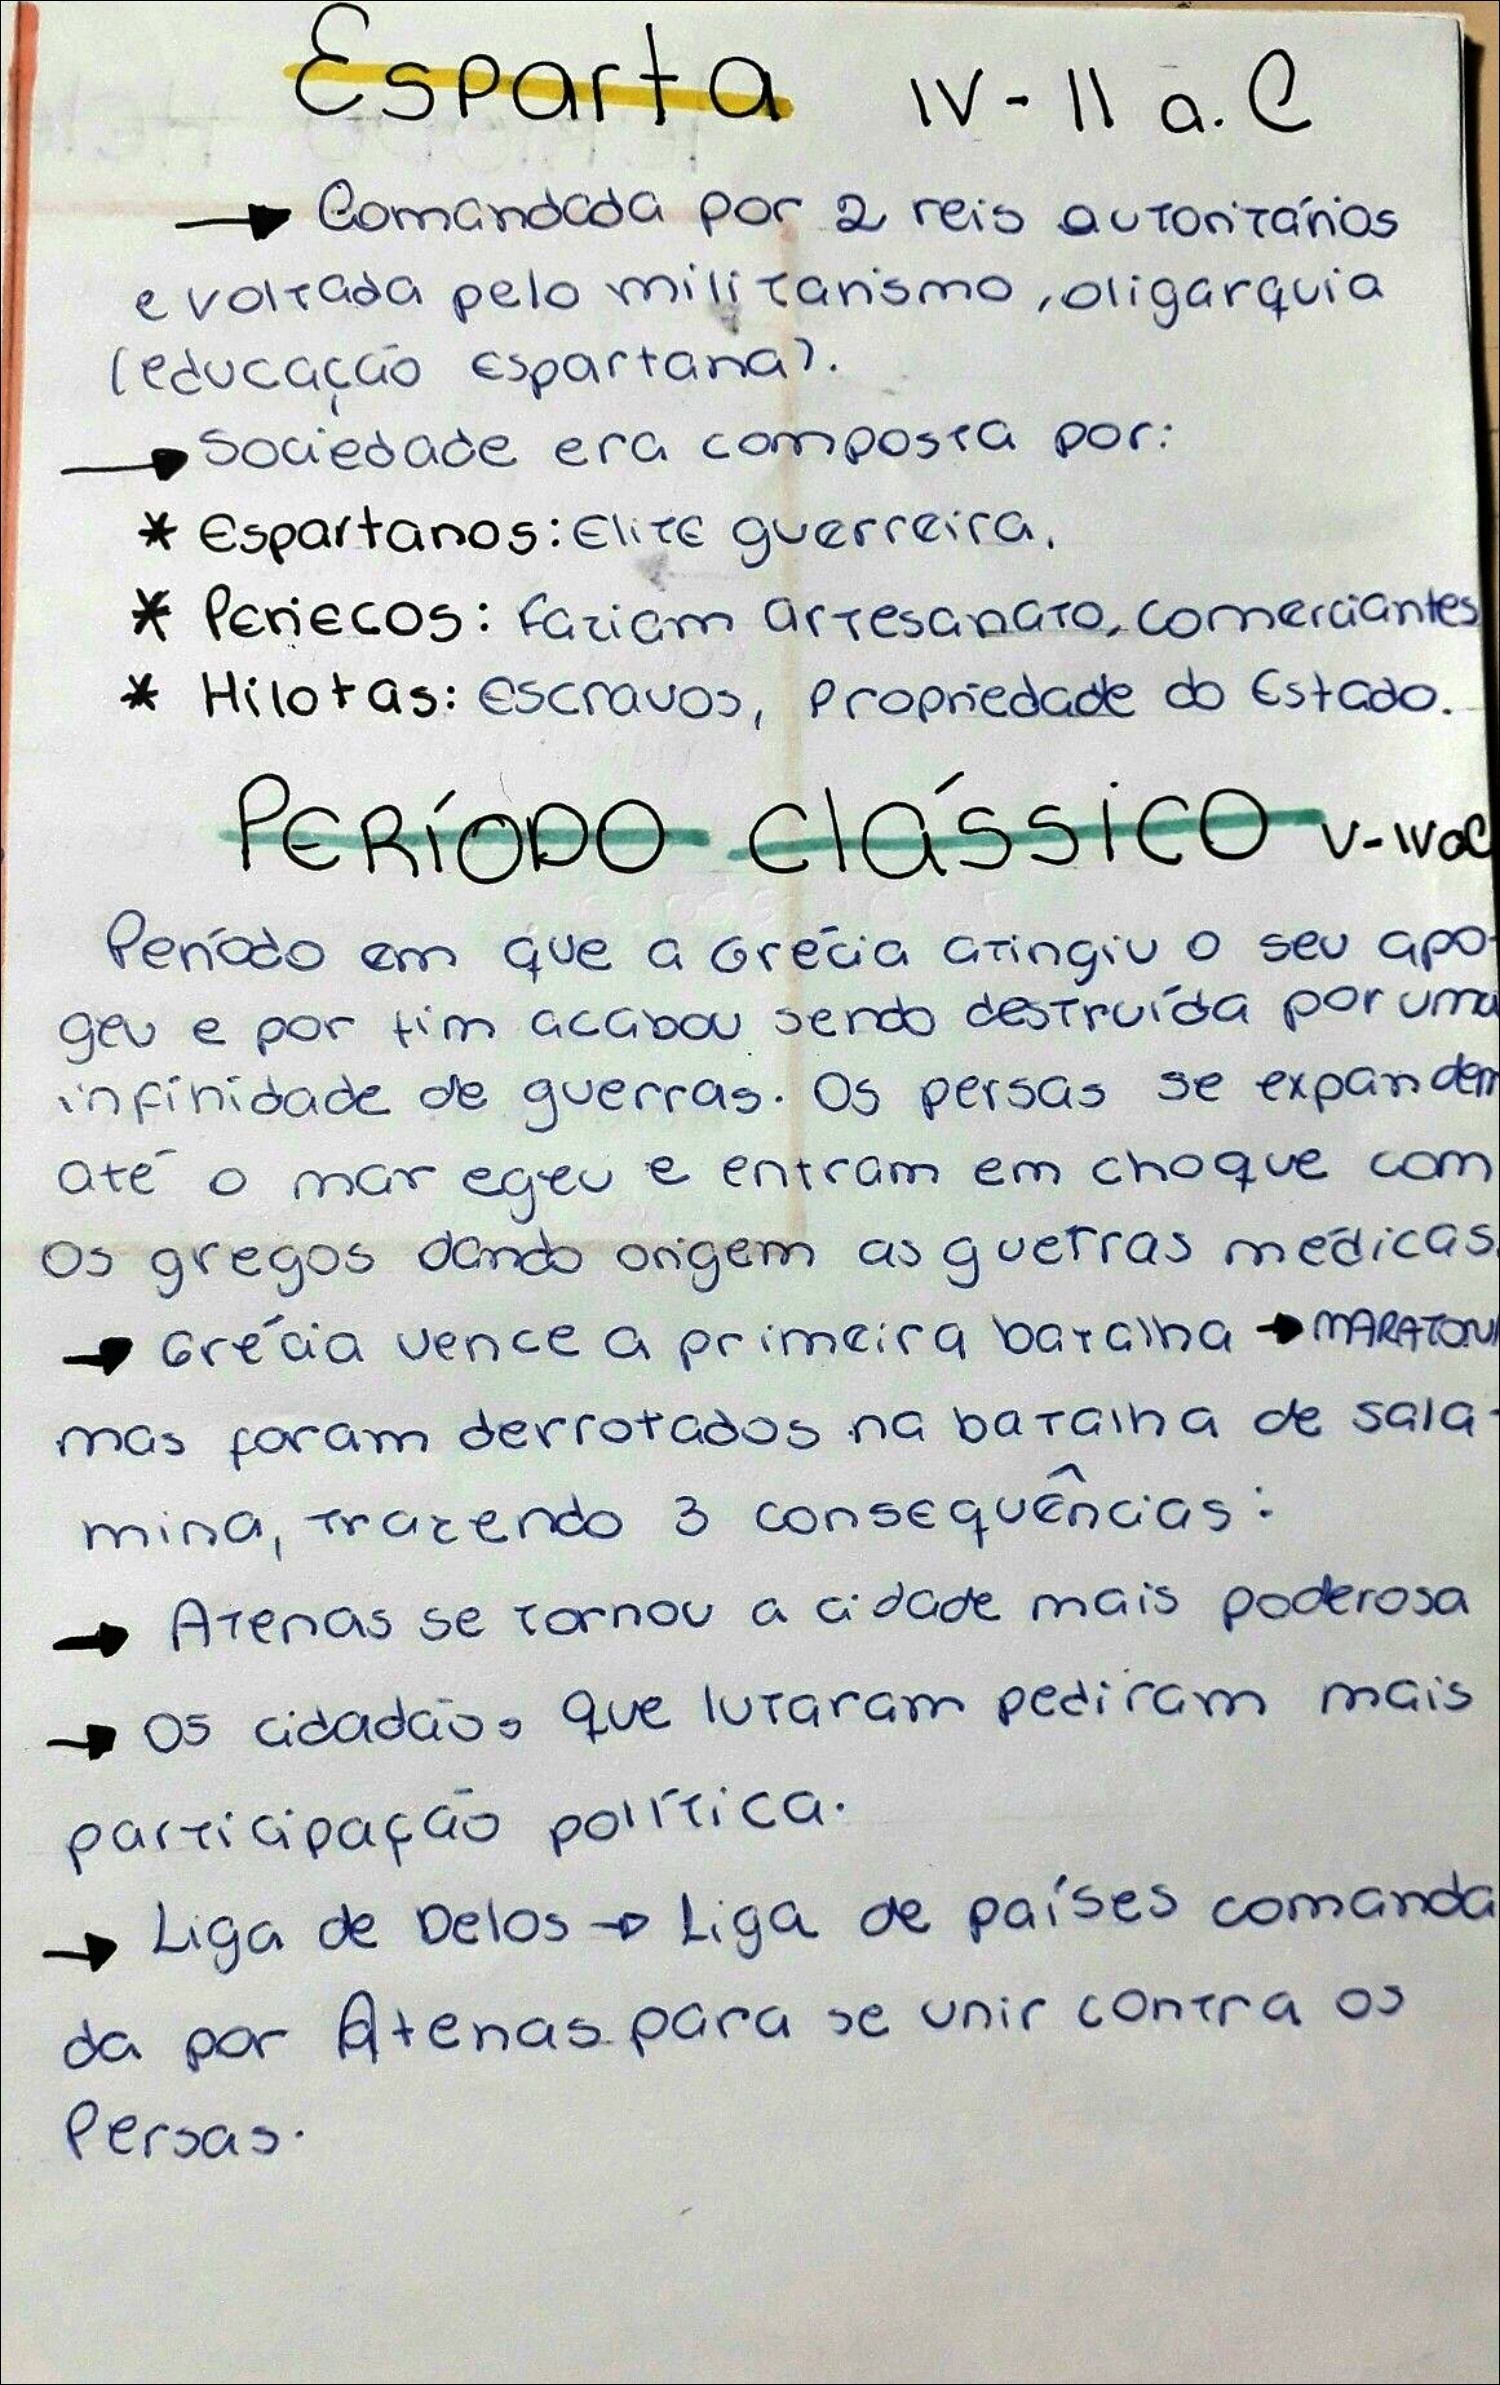 Esparta IV - II a.C
→ Comandada por 2 reis autoritários
e voltada pelo militarismo, oligarquia
(educação espartana).
→ Sociedade era composta por:
* Espartanos: Elite guerreira.
* Periecos: faziam artesanato, comerciantes
* Hilotas: escravos, propriedade do Estado.
PERÍODO clássico V-IV aC
Período em que a Grécia atingiu o seu apo-
geu e por fim acabou sendo destruída por uma
infinidade de guerras. Os persas se expandem
até o mar egeu e entram em choque com
os gregos dando origem as guerras médicas.
→ Grécia vence a primeira batalha → MARATONA
mas foram derrotados na batalha de sala-
mina, trazendo 3 consequências:
→ Atenas se tornou a cidade mais poderosa
→ Os cidadãos que lutaram pediram mais
participação política.
→ Liga de Delos → Liga de países comanda
da por Atenas para se unir contra os
Persas.